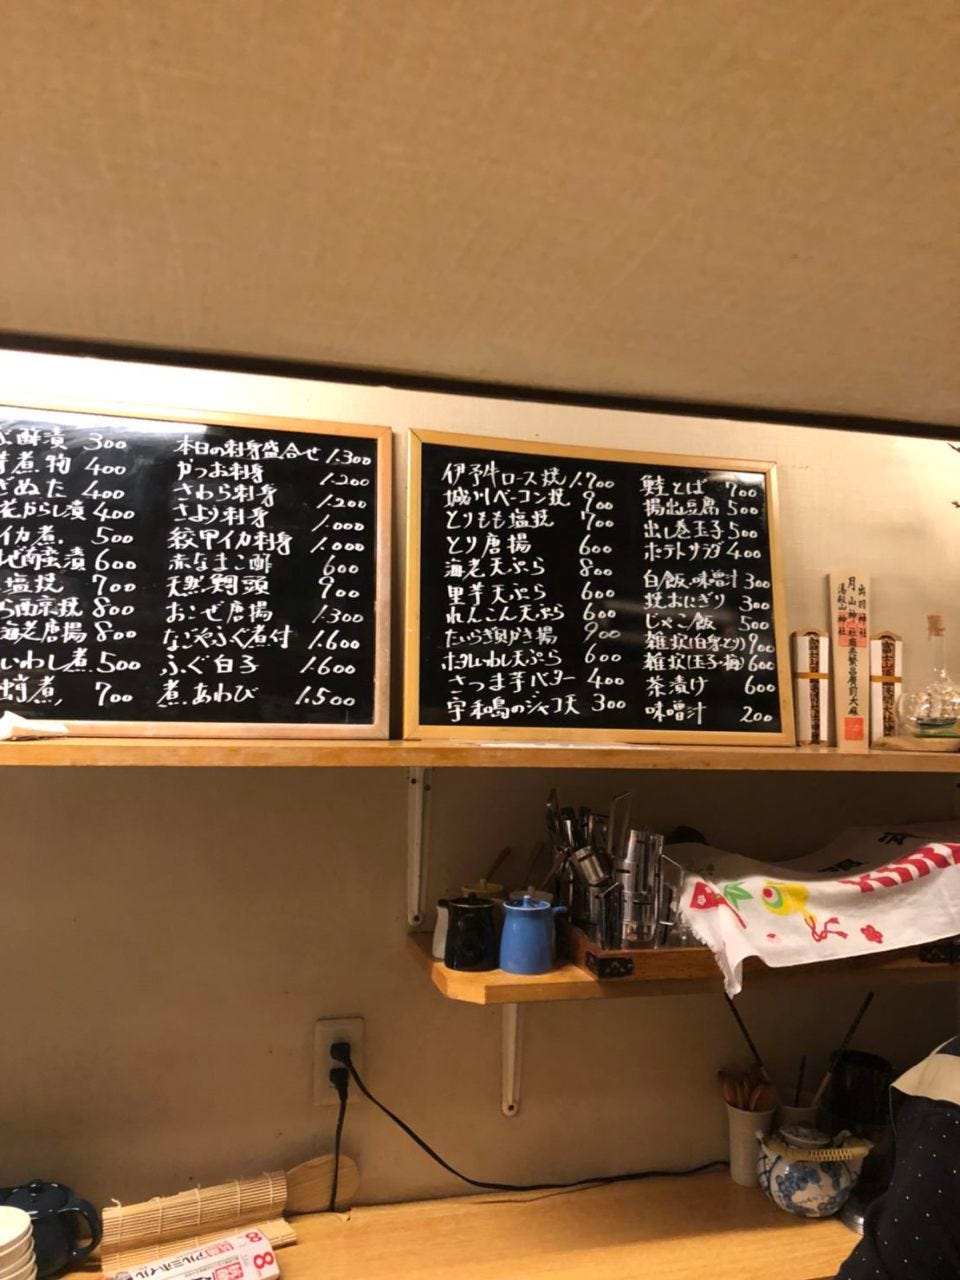 酢漬 300
煮物 400
ぎぬた 400
からし漬 400
イカ煮. 500
南蛮漬 600
塩焼 700
南京焼 800
海老唐揚 800
いわし煮 500
煮 700
本日の刺身盛合せ 1.300
かつお刺身 1.200
さわら刺身 1.200
さより刺身 1.000
紋甲イカ刺身 1.000
赤なまこ酢 600
天然鯛頭 900
おこぜ唐揚 1.300
なごやふぐ煮付 1.600
ふぐ白子 1.600
煮あわび 1.500
伊予牛ロース焼 1.900
城川ベーコン焼 900
とりもも塩焼 700
とり唐揚 600
海老天ぷら 800
里芋天ぷら 600
れんこん天ぷら 600
たいらぎ貝かき揚 900
ホタルいわし天ぷら 600
さつま芋バター 400
宇和島のジャコ天 300
鮭とば 700
揚出豆腐 500
出し巻玉子 500
ポテトサラダ 400
白飯、味噌汁 300
焼おにぎり 300
じゃこ飯 500
雑炊(白身・とり) 900
雑炊(玉子・梅) 600
茶漬け 600
味噌汁 200
出羽神社
月山神社
湯殿山神社
アルミホイル
8